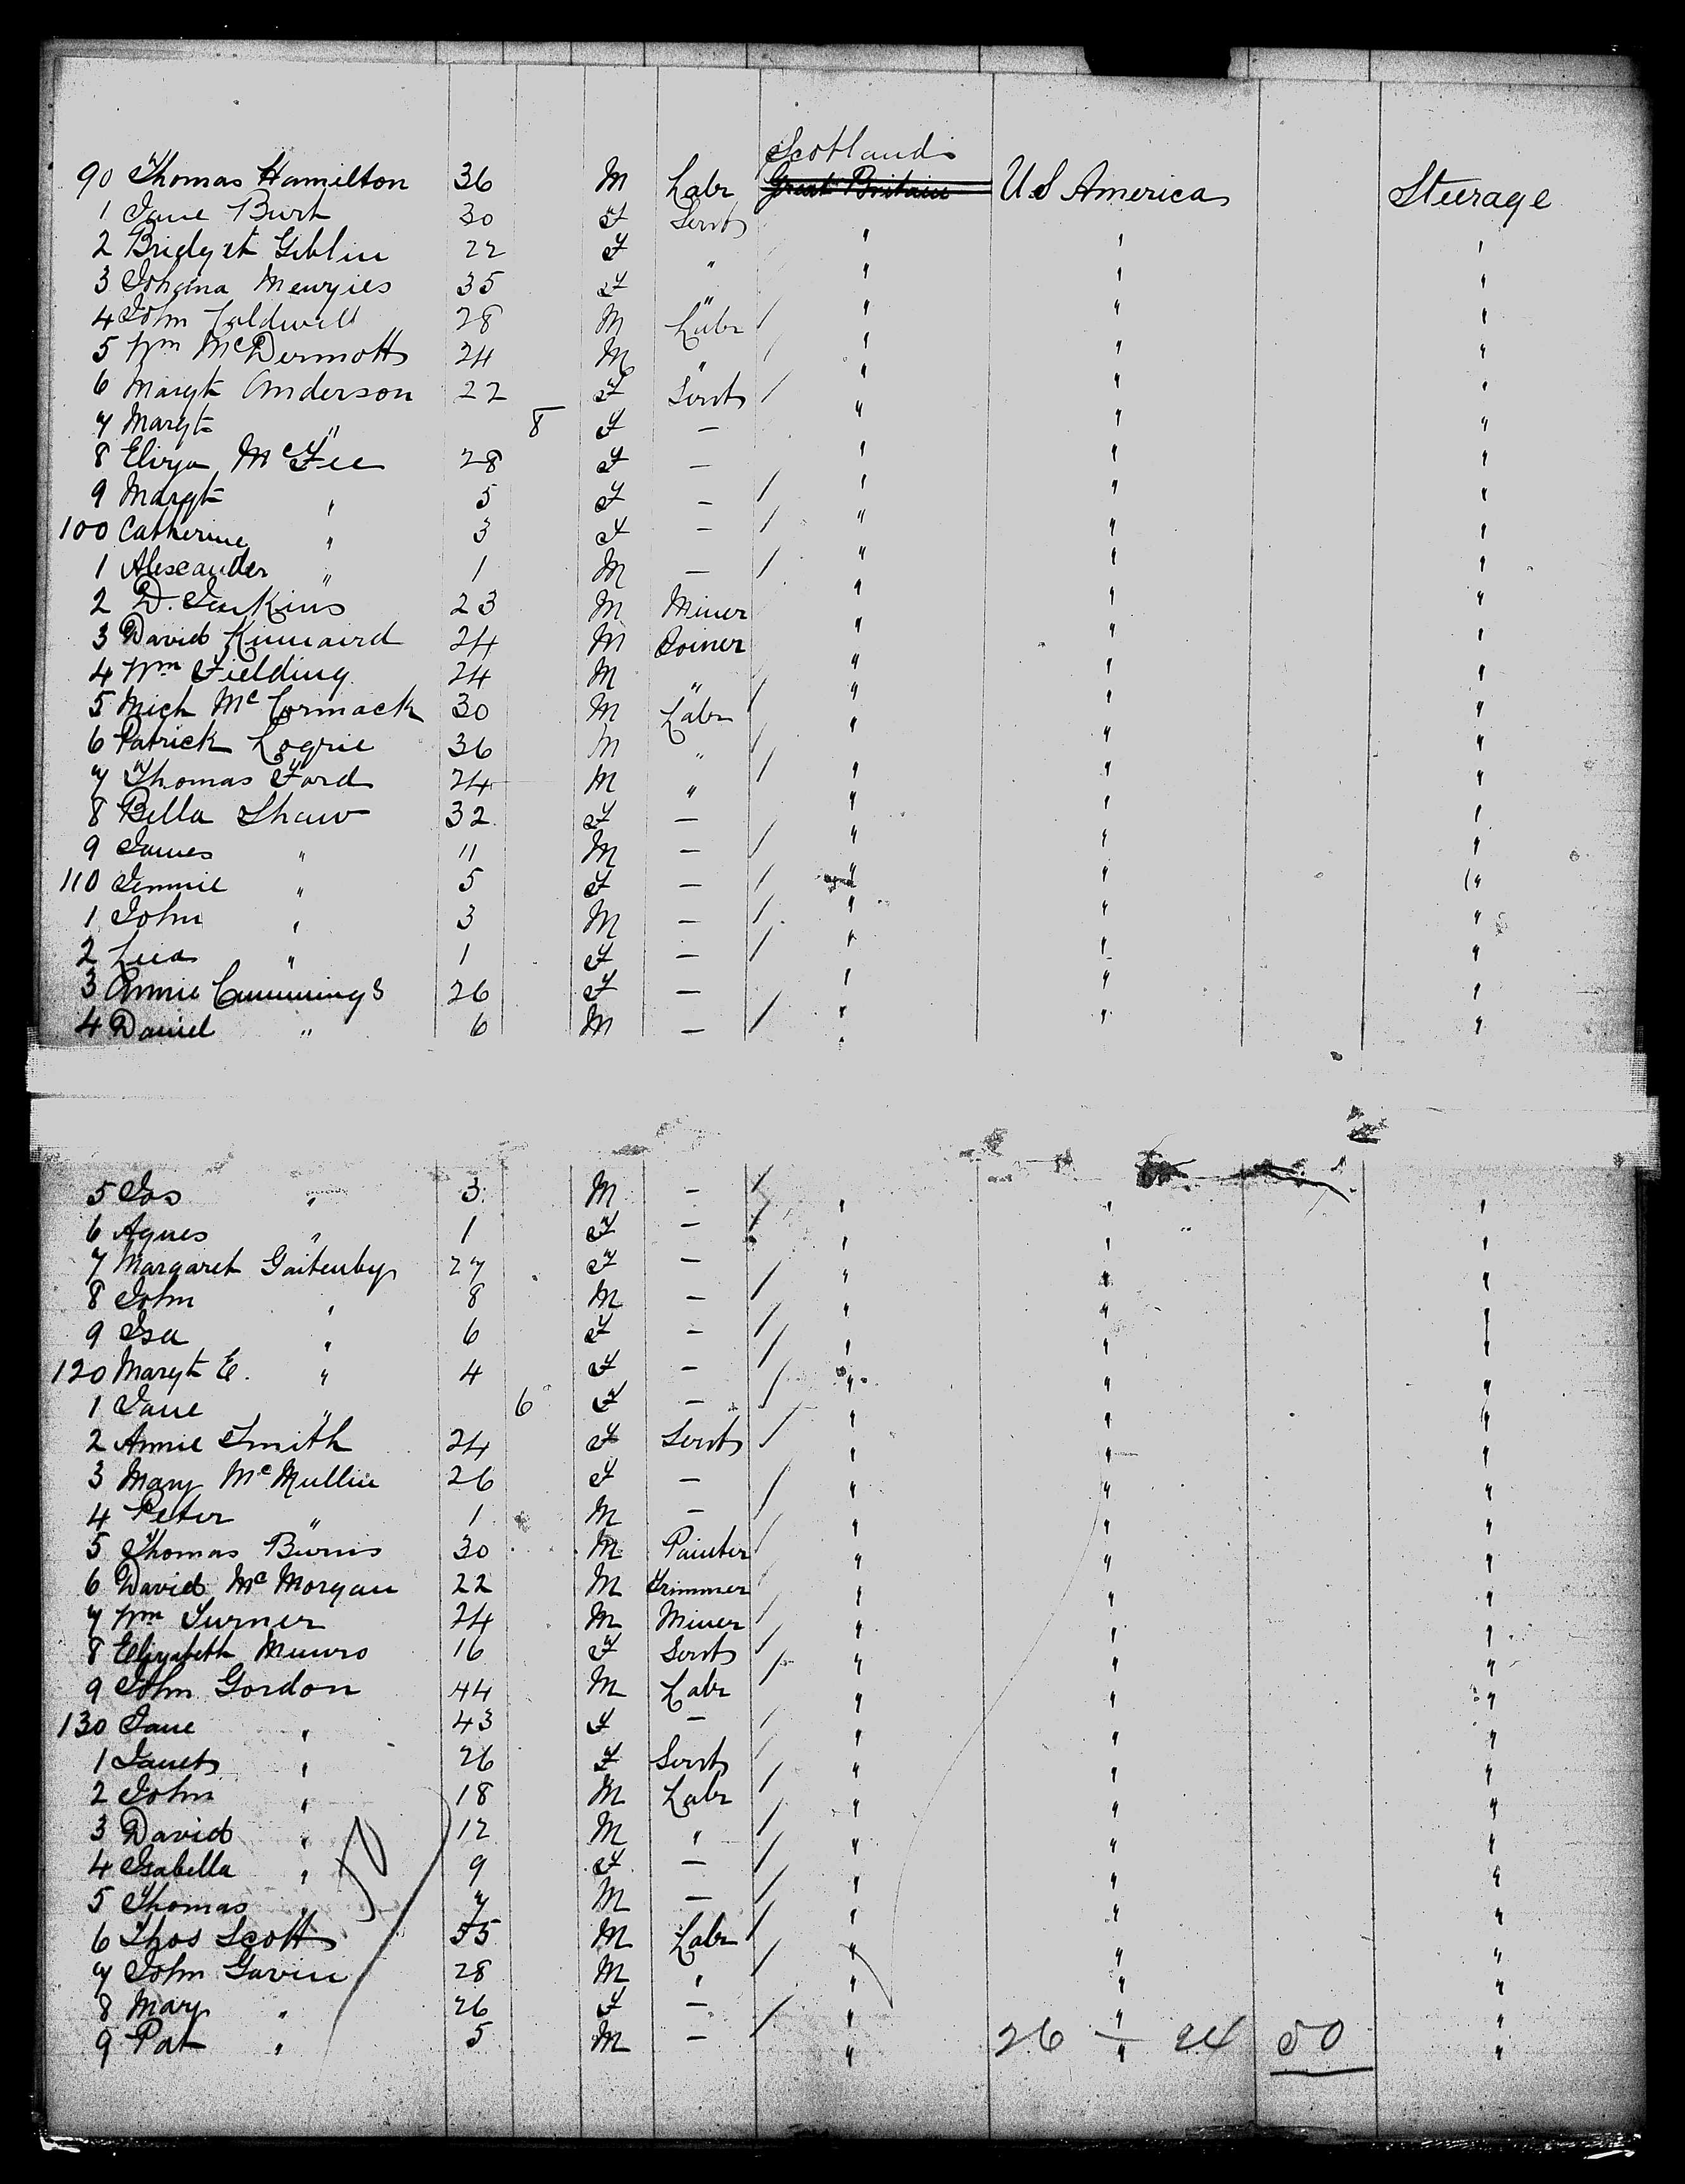 Scotland
90 Thomas Hamilton 36 M Labr Great Britain U S America Steerage
1 Jane Burt 30 F Servt " " "
2 Bridget Giblin 22 F " " " "
3 Johanna Menzies 35 F " " " "
4 John Caldwell 28 M Labr " " "
5 Wm McDermott 24 M " " " "
6 Margt Anderson 22 F Servt " " "
7 Margt " 8 F — " " "
8 Eliza McFee 28 F — " " "
9 Margt " 5 F — " " "
100 Catherine " 3 F — " " "
1 Alexander " 1 M — " " "
2 D. Jenkins 23 M Miner " " "
3 David Kinnaird 24 M Joiner " " "
4 Wm Fielding 24 M " " " "
5 Mich McCormack 30 M Labr " " "
6 Patrick Logrie 36 M " " " "
7 Thomas Ford 24 M " " " "
8 Bella Shaw 32 F — " " "
9 James " 11 M — " " "
110 Jemmie " 5 F — " " "
1 John " 3 M — " " "
2 " 1 F — " " "
3 Annie Cummings 26 F — " " "
4 Daniel " 6 M — " " "
5 Jos " 3 M — " " "
6 Agnes " 1 F — " " "
7 Margaret Gaitenby 27 F — " " "
8 John " 8 M — " " "
9 Isa " 6 F — " " "
120 Margt E. " 4 F — " " "
1 Jane " 6 F — " " "
2 Annie Smith 24 F Servt " " "
3 Mary McMullin 26 F — " " "
4 Peter " 1 M — " " "
5 Thomas Burns 30 M Painter " " "
6 David McMorgan 22 M Trimmer " " "
7 Wm Turner 24 M Miner " " "
8 Elizabeth Munro 16 F Servt " " "
9 John Gordon 44 M Labr " " "
130 Jane " 43 F — " " "
1 Janet " 26 F Servt " " "
2 John " 18 M Labr " " "
3 David " 12 M " " " "
4 Isabella " 9 F — " " "
5 Thomas " 7 M — " " "
6 Thos Scott 55 M Labr " " "
7 John Gavin 28 M " " " "
8 Mary " 26 F — " " "
9 Pat " 5 M — " " "
26 — 24 50